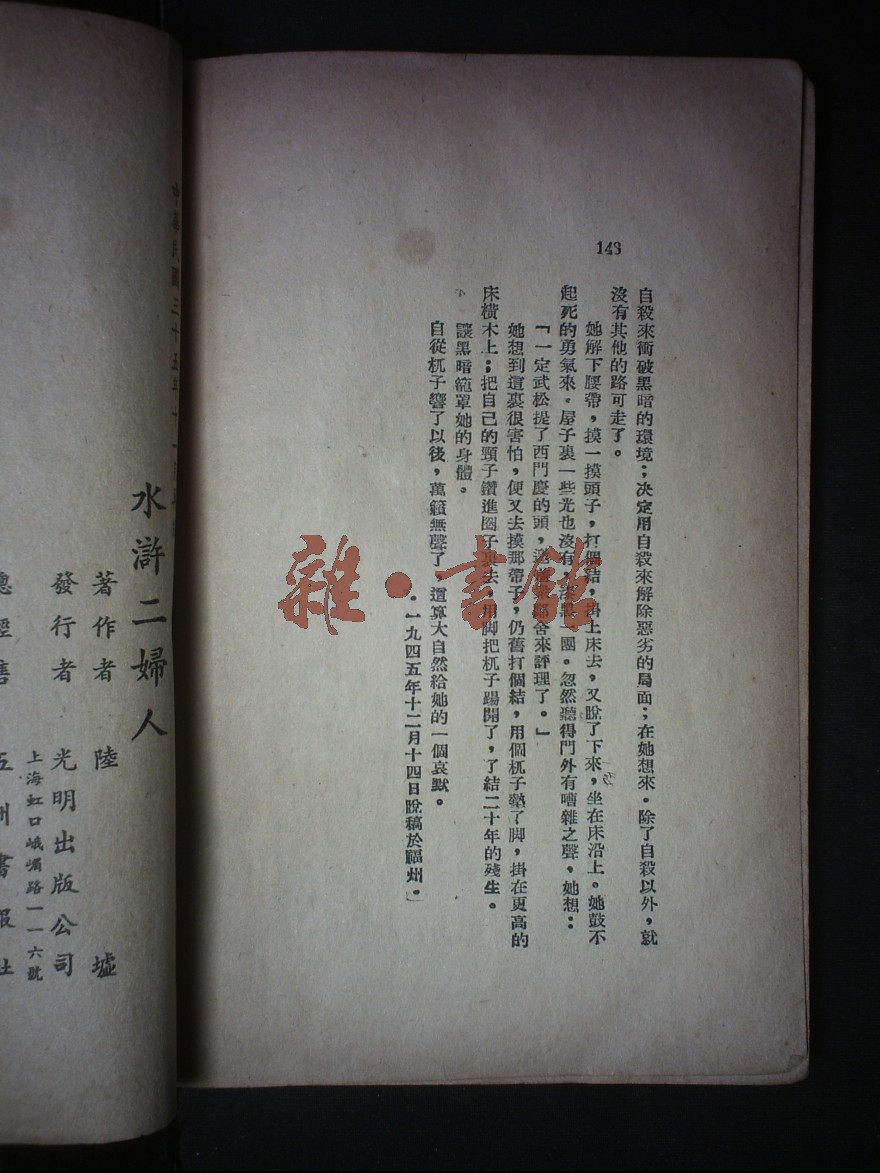 143
自殺來衝破黑暗的環境；決定用自殺來解除惡劣的局面；在她想來．除了自殺以外，就
沒有其他的路可走了。
她解下腰帶，摸一摸頭子，打個結，掛上床去，又脫了下來，坐在床沿上。她鼓不
起死的勇氣來．屋子裏一些光也沒有，漆黑一團。忽然聽得門外有嘈雜之聲，她想：
「一定武松提了西門慶的頭，來鄰舍來評理了。」
她想到這裏很害怕，便又去摸那帶子，仍舊打個結，用個杌子墊了脚，掛在更高的
床橫木上；把自己的頸子鑽進圈子裏去，用脚把杌子踢開了，了結二十年的殘生。
讓黑暗籠罩她的身體。
自從杌子響了以後，萬籟無聲了，還算大自然給她的一個哀默。
．一九四五年十二月十四日脫稿於福州．
中華民國三十五年十一月
水滸二婦人
著作者 陸墟
發行者 光明出版公司
上海虹口峨嵋路一一六號
總經售 五洲書報社
雜·書館